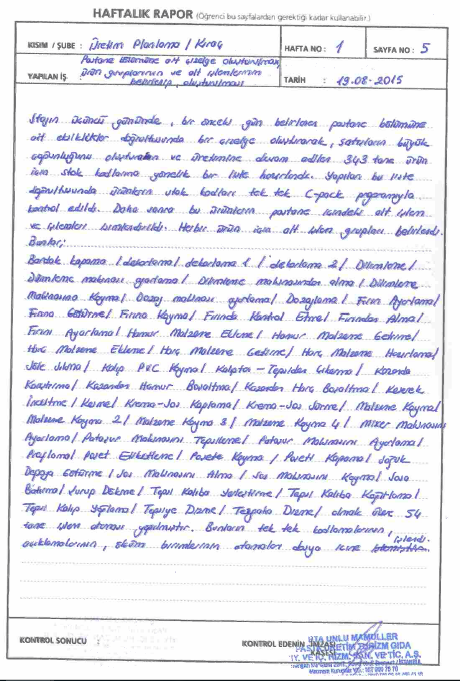 HAFTALIK RAPOR (Öğrenci bu sayfalardan gerektiği kadar kullanabilir.)
KISIM / ŞUBE : Üretim Planlama / Kıraç
HAFTA NO : 1
SAYFA NO : 5
YAPILAN İŞ :
Pastane bölümüne ait çizelge oluşturulması,
ürün gruplarının ve alt işlemlerinin
belirlenip, oluşturulması
TARİH : 19.08.2015
Stajın üçüncü gününde, bir önceki gün belirlenen pastane bölümüne
ait eksiklikler doğrultusunda bir çizelge oluşturarak, satırların büyük
çoğunluğunu oluşturulan ve üretimine devam edilen 343 tane ürün
için stok kodlarına yönelik bir liste hazırlandı. Yapılan bu liste
doğrultusunda ürünlerin stok kodları tek tek C-pack programıyla
kontrol edildi. Daha sonra bu ürünlerin pastane içindeki alt işlem
ve işlemleri isimlendirildi. Her bir ürün için alt işlem grupları belirlendi.
Bunlar;
Bardak kapama / dekorlama / dekorlama 1 / dekorlama 2 / Dilimleme /
Dilimleme makinası ayarlama / Dilimleme makinasından alma / Dilimleme
Makinasına Koyma / Dozaj makinası ayarlama / Dozajlama / Fırın Ayarlama /
Fırına Götürme / Fırına Koyma / Fırında Kontrol Etme / Fırından Alma /
Fırını Ayarlama / Hamur Malzeme Ekleme / Hamur Malzeme Getirme /
Harç Malzeme Ekleme / Harç Malzeme Getirme / Harç Malzeme Hazırlama /
Jöle Sıkma / Kalıp PVC Koyma / Kalıpta - Tepsiden Çıkarma / Kazanda
Karıştırma / Kazandan Hamur Boşaltma / Kazandan Harç Boşaltma / Kesecek
İnceltme / Kesme / Krema-Sos Kaplama / Krema-Sos Sürme / Malzeme Koyma /
Malzeme Koyma 2 / Malzeme Koyma 3 / Malzeme Koyma 4 / Mixer Makinasını
Ayarlama / Potaşur Makinasını Tepsileme / Potaşur Makinasını Ayarlama /
Paket Etiketleme / Pakete Koyma / Paketi Kapama / Soğuk
Depoya Götürme / Sos Makinasını Alma / Sos Makinasını Koyma / Sosa
Batırma / Şurup Dökme / Tepsi Kalıba Yerleştirme / Tepsi Kalıba
Tepsi Kalıp Yağlama / Tepsiye Dizme / Tezgaha Dizme / olmak üzere 54
tane işlem ataması yapılmıştır. Bunların tek tek kodlamalarının,
açıklamalarının, ölçüm birimlerinin atamaları dosya içine işlendi.
KONTROL SONUCU :
KONTROL EDENİN İMZASI
KAŞESİ
UNLU MAMULLER